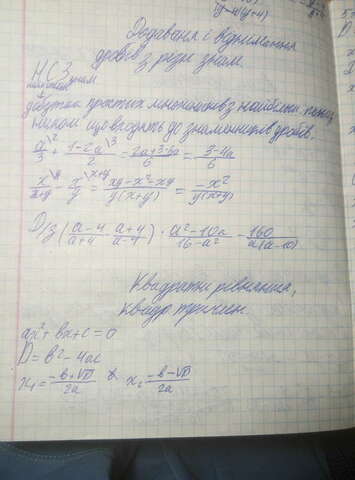 (y-4)(y+4)
Додавання і віднімання
дробів з різн. знам.
НСЗ
знам
добуток простих множників з найбільш. показ
ником що входять до знаменників дробів.
a\2/3 + 1-2a\3/2 = 2a+3-6a/6 = 3-4a/6
x\y/x+y - x\x+y/y = xy-x²-xy/y(x+y) = -x²/y(x+y)
Д/з (a-4/a+4 - a+4/a-4) · a²-10a/16-a² - 160/a(a-10)
Квадратні рівняння,
квадр тричлен.
ax²+bx+c=0
D=b²-4ac
x₁=-b+√D/2a x₂=-b-√D/2a